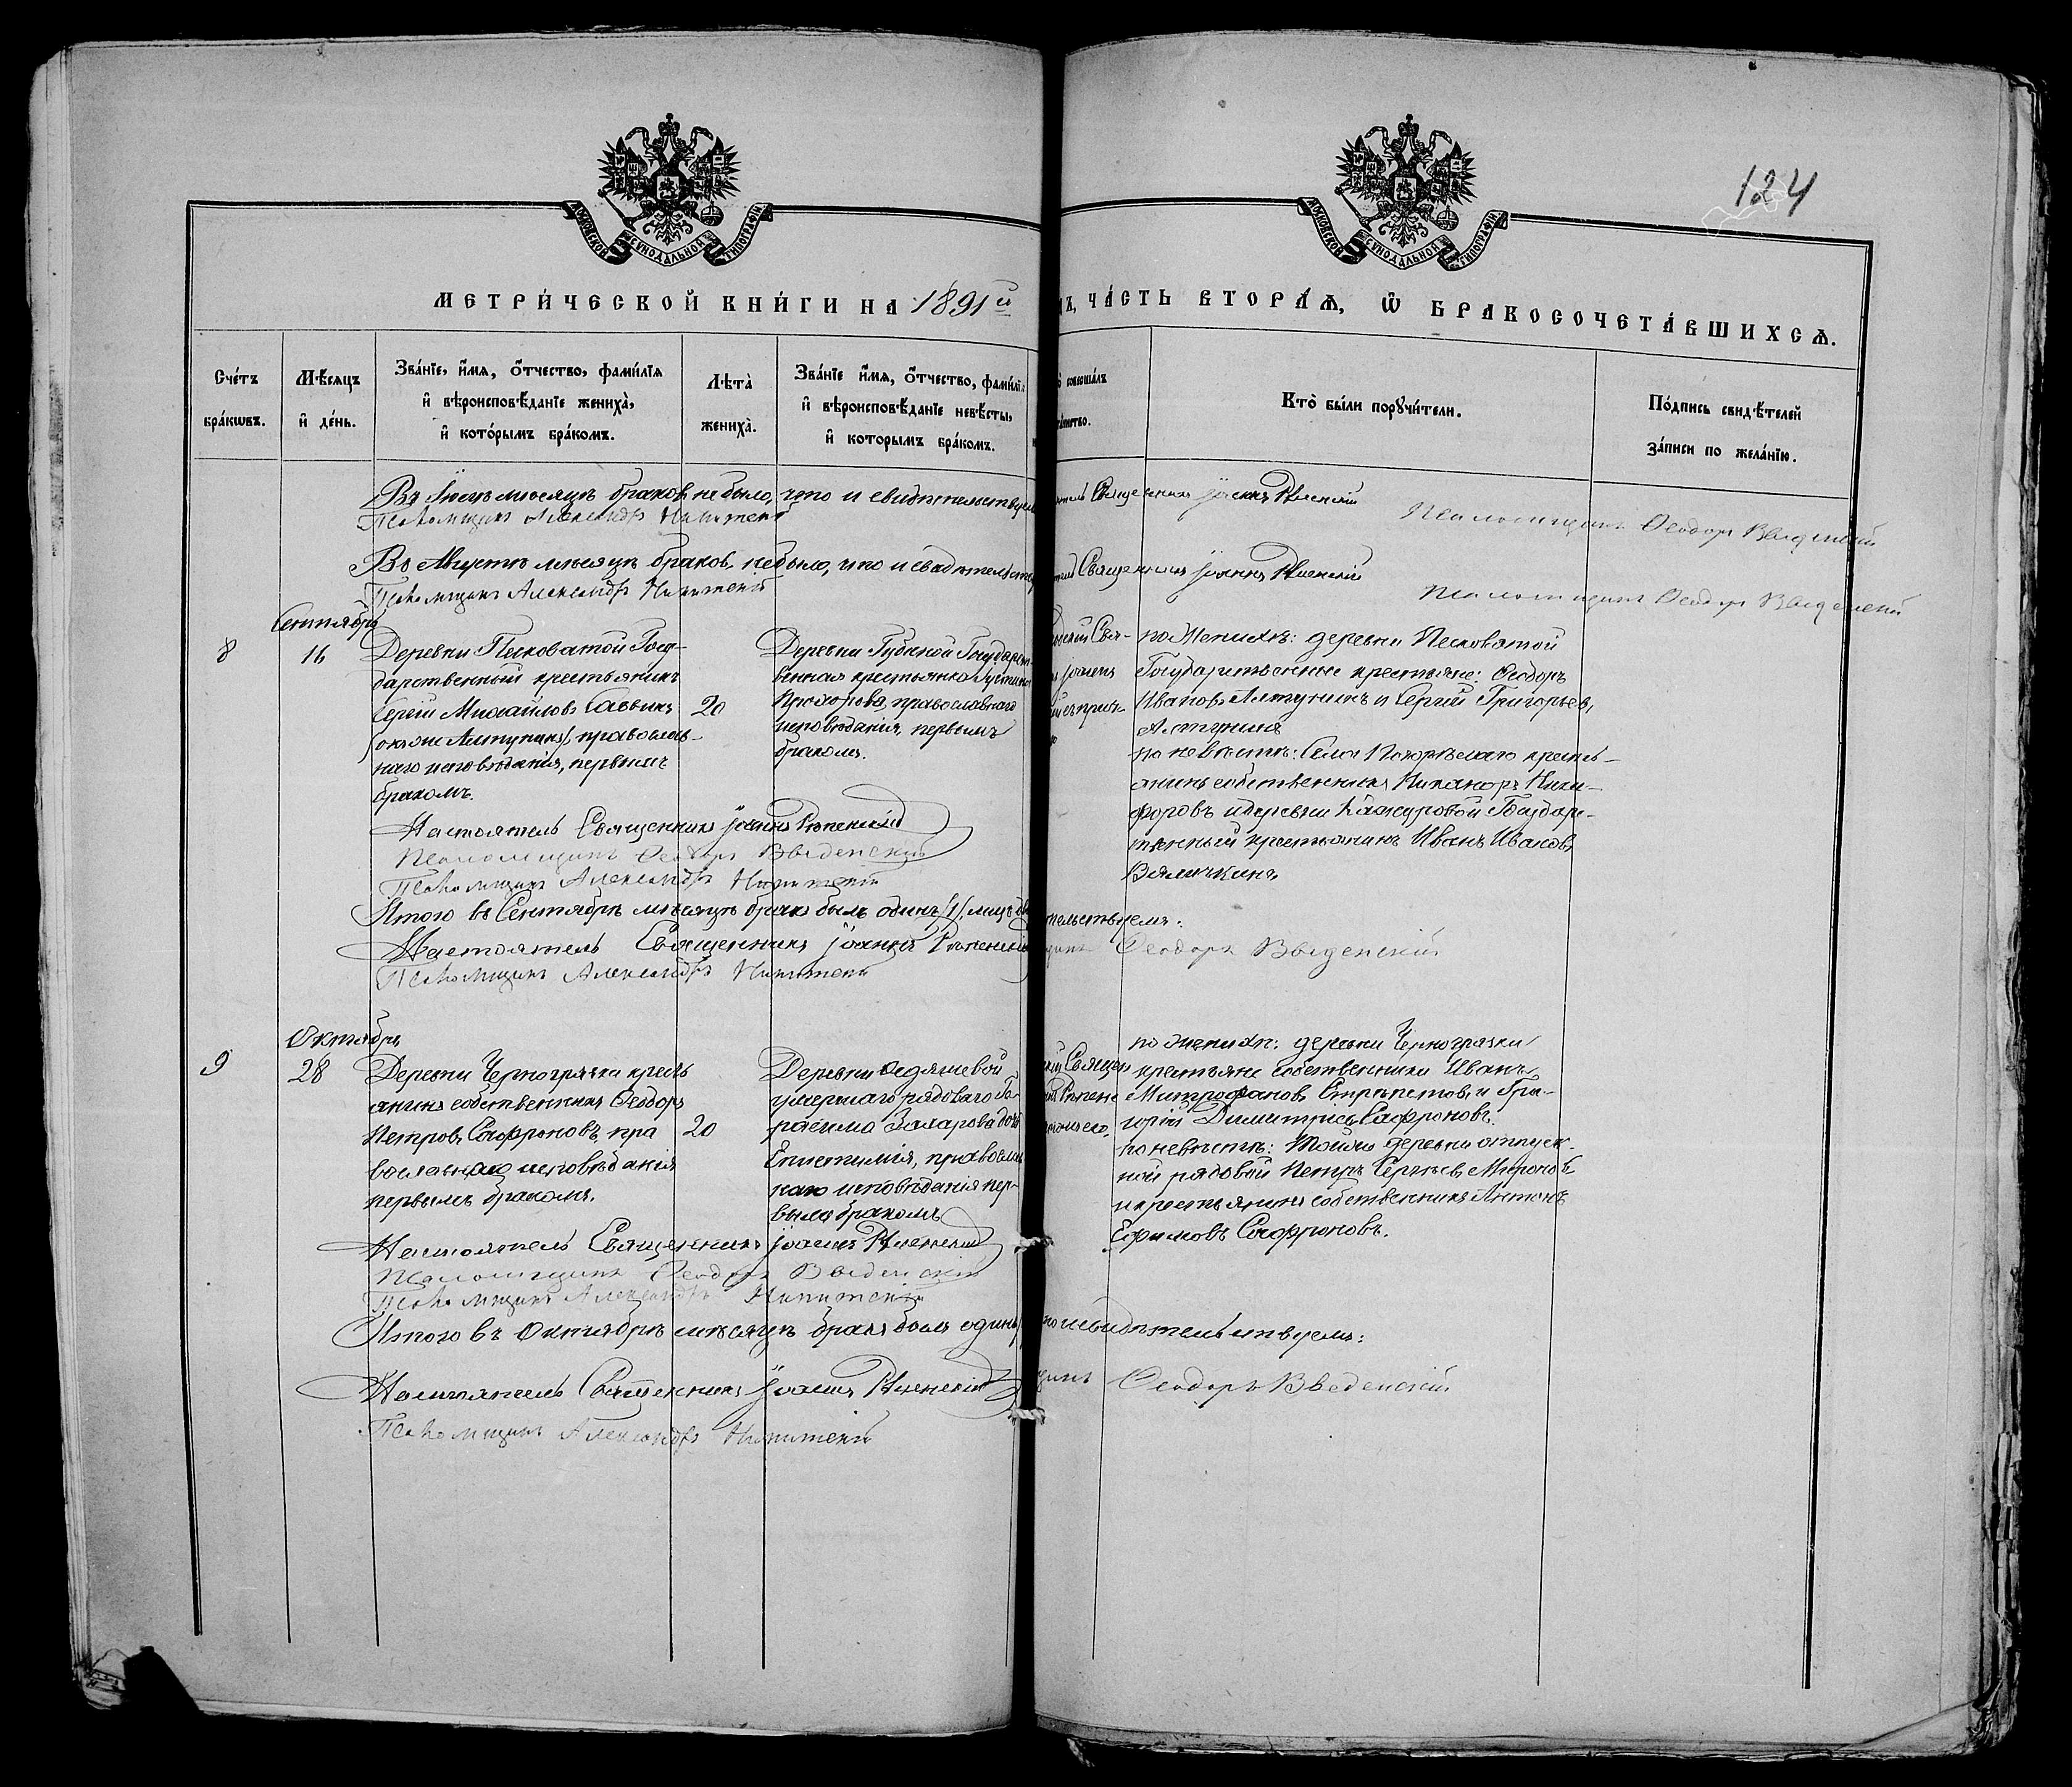 124
МОСКОВСКОЙ СѴНОДАЛЬНОЙ ТИПОГРАФІИ
МОСКОВСКОЙ СѴНОДАЛЬНОЙ ТИПОГРАФІИ
МЕТРИ́ЧЕСКОЙ КНИ́ГИ НА 1891й
ЧА́СТЬ ВТОРА́Ѧ, Ѡ҆ БРАКОСОЧЕТА́ВШИХСѦ.
Сче́тъ бра́кѡвъ.
Мѣ́сяцъ и҆ де́нь.
Зва́нїе, и҆́мя, ѻ҆́тчество, фами́лїя
и҆ вѣроисповѣ́данїе жениха̀,
и҆ кото́рымъ бра́комъ.
Лѣта̀ жениха̀.
Зва́нїе и҆́мя, ѻ҆́тчество, фами́лїя
и҆ вѣроисповѣ́данїе невѣ́сты,
и҆ которымъ бра́комъ.
совершалъ
Кто̀ бы́ли порꙋчи́тели.
По́дпись свидѣ́телей
за́писи по жела́нїю.
Въ Іюлѣ мѣсяцѣ браковъ не было, что и свидѣтельствуемъ
Священникъ Іоаннъ
Псаломщикъ Александръ
Псаломщикъ Ѳеодоръ Введенскій
Въ Августѣ мѣсяцѣ браковъ не было, что и свидѣтельству
Священникъ Іоаннъ
Псаломщикъ Александръ
Псаломщикъ Ѳеодоръ Введенскій
Сентябрь
8
16
Деревни Песковатой Госу-
дарственный крестьянинъ
Сергій Михаиловъ Савинъ
(онъ же Алтунинъ), православ-
наго исповѣданія, первымъ
бракомъ.
20
Деревни Губиной Государст-
венная крестьянка Іустина
Прохорова, православнаго
исповѣданія, первымъ
бракомъ.
Свя-
Іоаннъ
по Женихѣ: деревни Песковатой
Государственные крестьяне: Ѳеодоръ
Ивановъ Алтунинъ и Сергій Григорьевъ
Алтунинъ
по невѣстѣ: Села крестья-
янинъ собственникъ Никаноръ Ники-
форовъ и деревни Государ-
ственный крестьянинъ Иванъ Ивановъ
Настоятель Священникъ Іоаннъ
Псаломщикъ Ѳеодоръ Введенскій
Псаломщикъ Александръ
Итого въ Сентябрѣ мѣсяцѣ бракъ былъ одинъ (1), лицъ
тельствуемъ:
Настоятель Священникъ Іоаннъ
Ѳеодоръ Введенскій
Псаломщикъ Александръ
Октябрь
9
28
Деревни Черногрязки кресть
янинъ собственникъ Ѳеодоръ
Петровъ Сафроновъ пра
вославнаго исповѣданія
первымъ бракомъ.
20
Деревни Ѳедяшевой
умершаго рядоваго Ге-
расима Захарова дочь
Епистимія, православ
наго исповѣданія пер-
вымъ бракомъ
Священ
по женихѣ: деревни Черногрязки
крестьяне собственники Иванъ
Митрофановъ и Гри-
горій Димитріевъ Сафроновъ.
по невѣстѣ: Той же деревни отпуск-
ной рядовой Петръ Сергѣевъ Мироновъ
и крестьянинъ собственникъ Антонъ
Ефимовъ Сафроновъ.
Настоятель Священникъ Іоаннъ
Псаломщикъ Ѳеодоръ Введенскій
Псаломщикъ Александръ
Итого въ Октябрѣ мѣсяцѣ бракъ былъ одинъ
свидѣтельствуемъ:
Настоятель Священникъ Іоаннъ
Ѳеодоръ Введенскій
Псаломщикъ Александръ